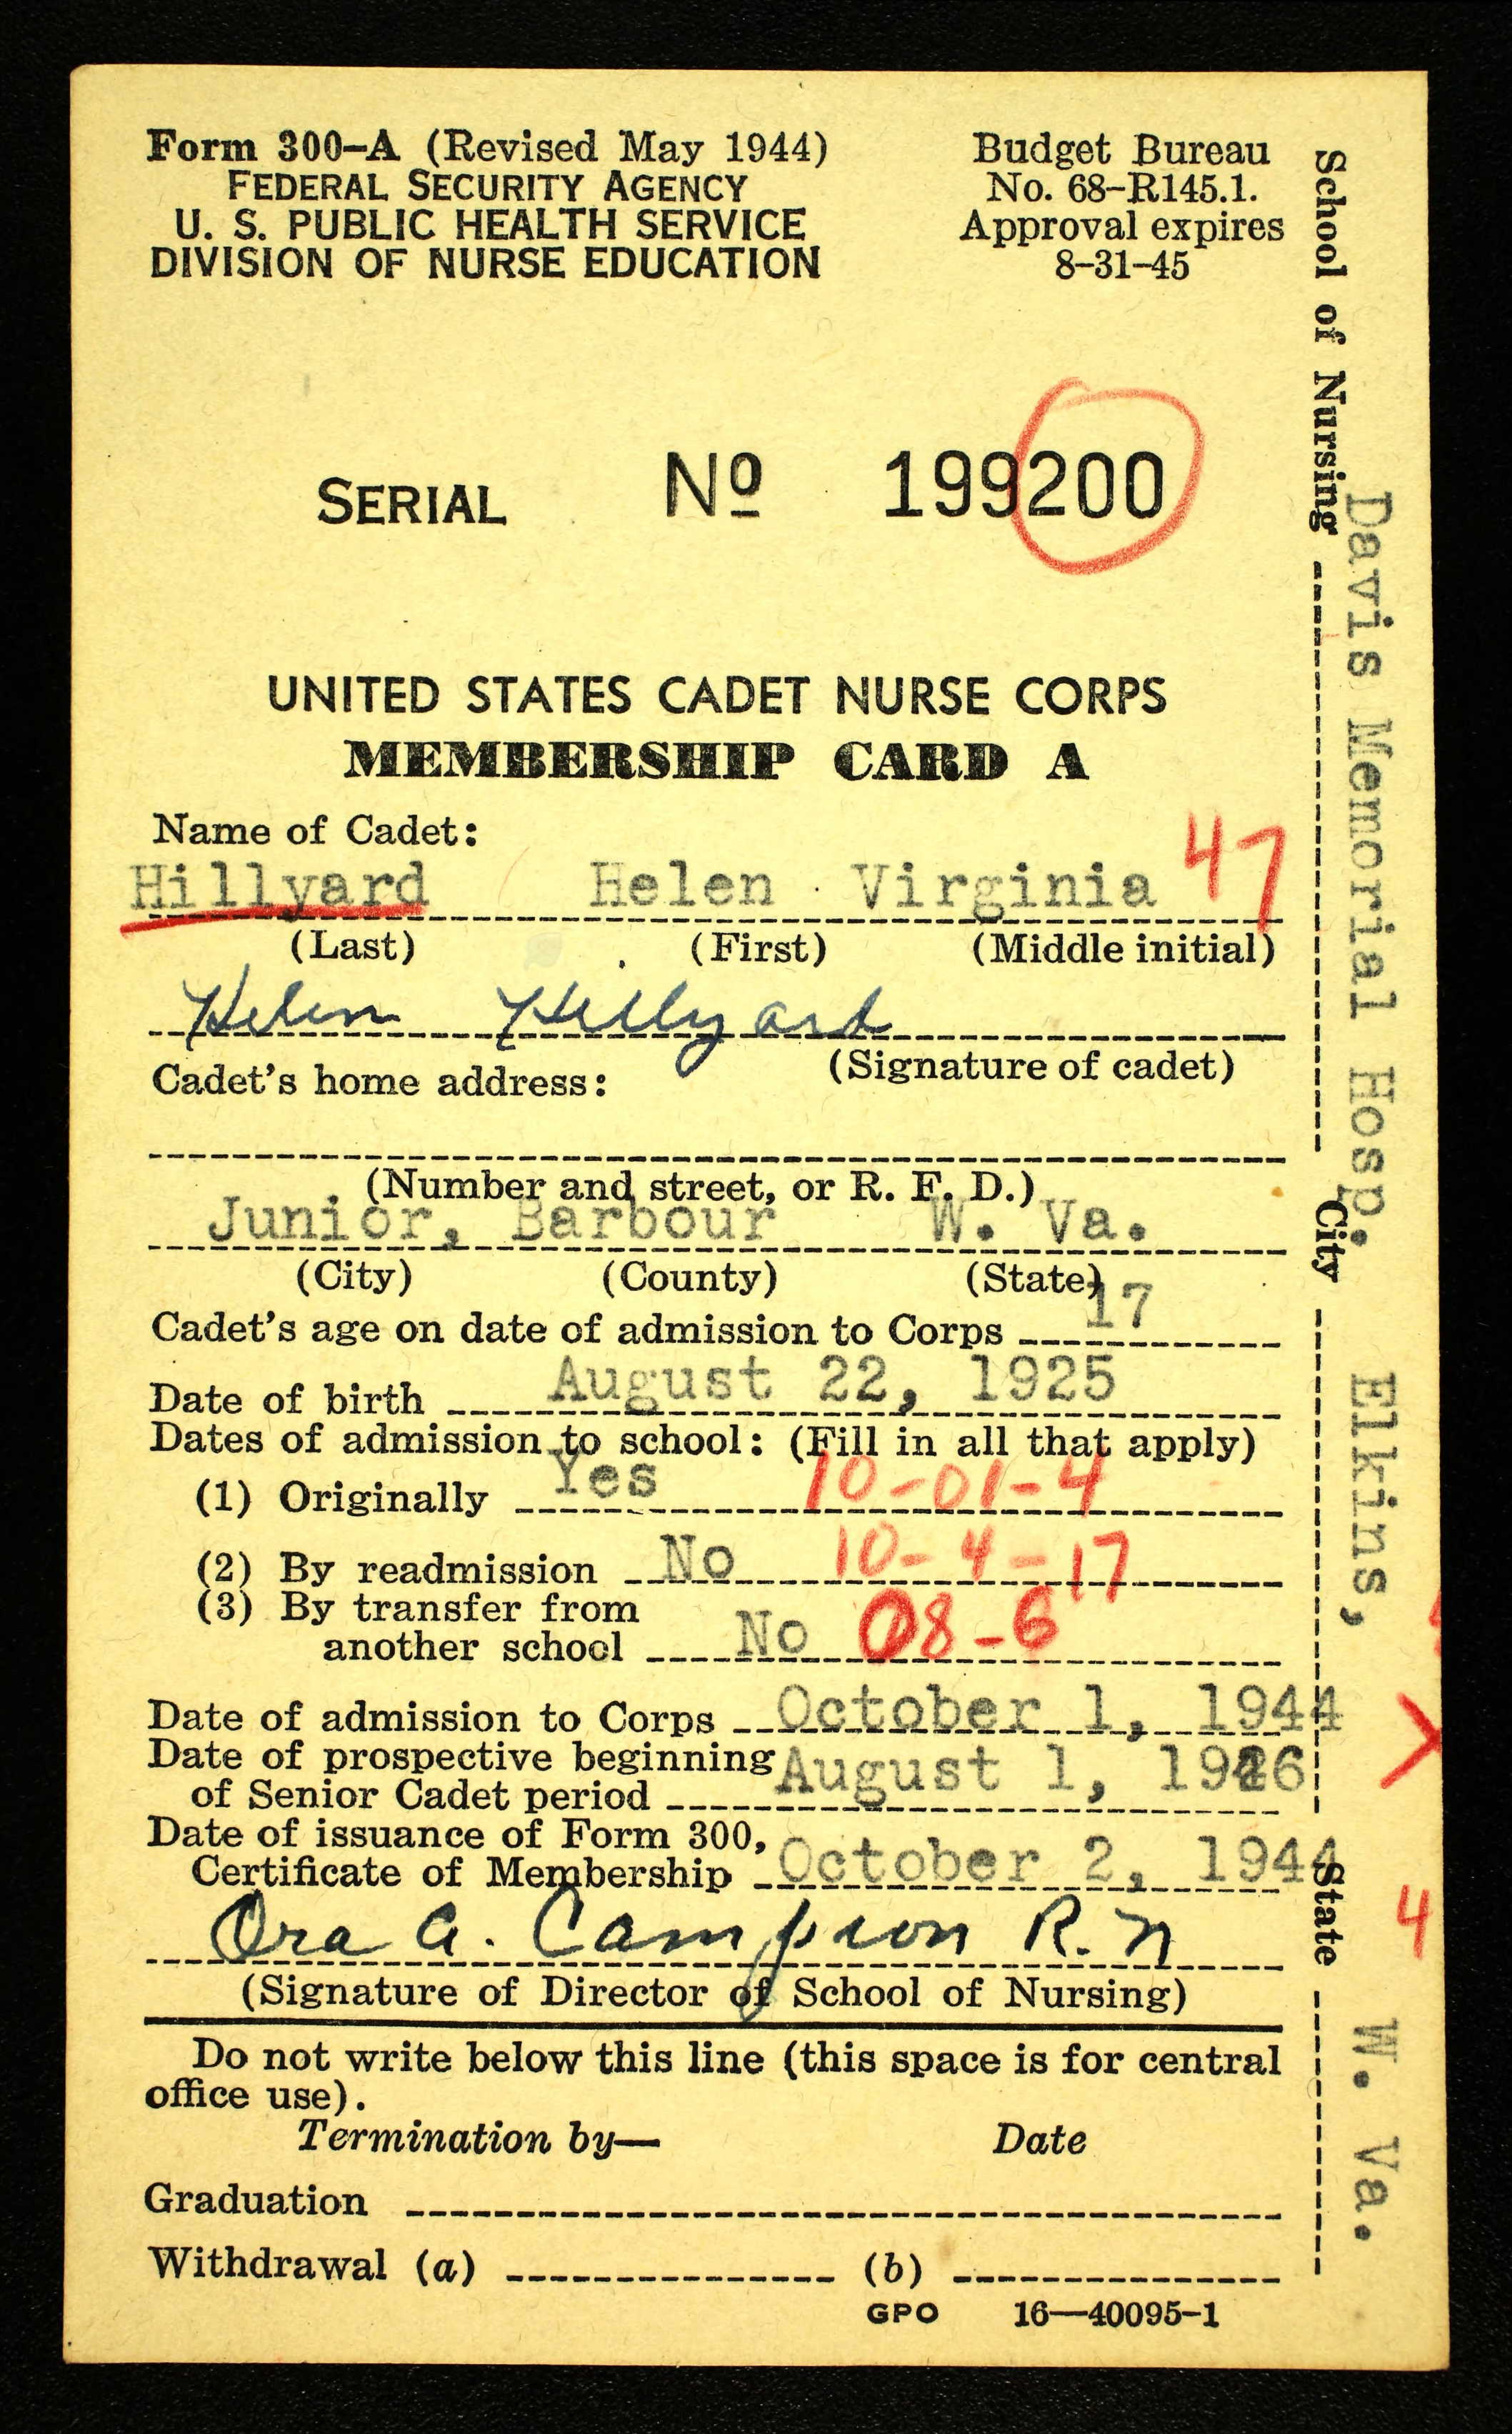 Form 300-A (Revised May 1944)
FEDERAL SECURITY AGENCY
U. S. PUBLIC HEALTH SERVICE
DIVISION OF NURSE EDUCATION
Budget Bureau
No. 68-R145.1.
Approval expires
8-31-45
SERIAL Nº 199200
UNITED STATES CADET NURSE CORPS
MEMBERSHIP CARD A
Name of Cadet:
Hillyard Helen Virginia 47
(Last) (First) (Middle initial)
Helen Hillyard
(Signature of cadet)
Cadet's home address:
(Number and street, or R. F. D.)
Junior, Barbour W. Va.
(City) (County) (State)
Cadet's age on date of admission to Corps 17
Date of birth August 22, 1925
Dates of admission to school: (Fill in all that apply)
(1) Originally Yes 10-01-4
(2) By readmission No 10-4-17
(3) By transfer from
another school No 08-6
Date of admission to Corps October 1, 1944
Date of prospective beginning
of Senior Cadet period August 1, 1946
Date of issuance of Form 300,
Certificate of Membership October 2, 1944
Ora A. Campion R.N
(Signature of Director of School of Nursing)
Do not write below this line (this space is for central
office use).
Termination by— Date
Graduation
Withdrawal (a) (b)
GPO 16—40095-1
School of Nursing Davis Memorial Hosp. City Elkins, State W. Va.
4